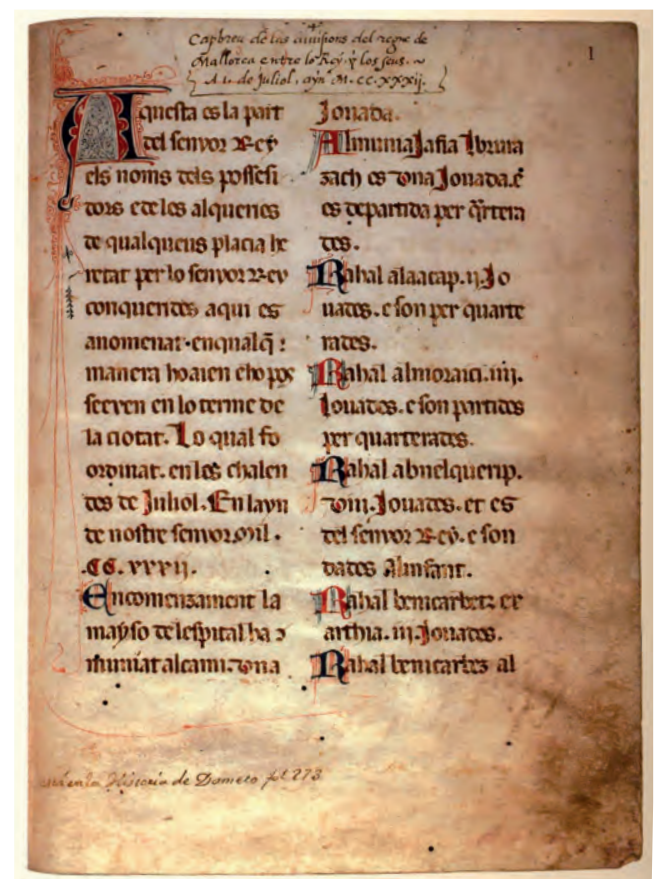 Capbreu de las divisions del regne de
Mallorca entre lo Rey, y los seus. ~
A .i. de Juliol, ayn M. CC. XXXij.
1
Aquesta es la part
del senyor Rey
els noms dels possesi
dors e de les alqueries
de qualqueus placia he
retat per lo senyor Rey
conquerides aqui es
anomenat. en qualq̃
manera ho aien e ho pos
seeyen en lo terme de
la ciotat. Lo qual fo
ordinat. en les chalen
des de Juliol. En layn
de nostre senyor. Mil.
.CC. xxxij.
Encomenzament la
mayso de lespital ha
.i. iouada
Jouada.
Almunia Jafia Abnuia
zach es .dona Jouada. e
es departida per q̃rtera
des.
Rahal alaacap. ij. Jo
uades. e son per quarte
rades.
Rahal almoraici. iiij.
Jouades. e son partides
per quarterades.
Rahal abnelquerip.
Jouades. et es
del senyor Rey. e son
dades Alinfant.
Rahal benicarbetz ex
arthia. iij. Jouades.
Rahal benicarbez al
en la Historia de Dameto fol 273